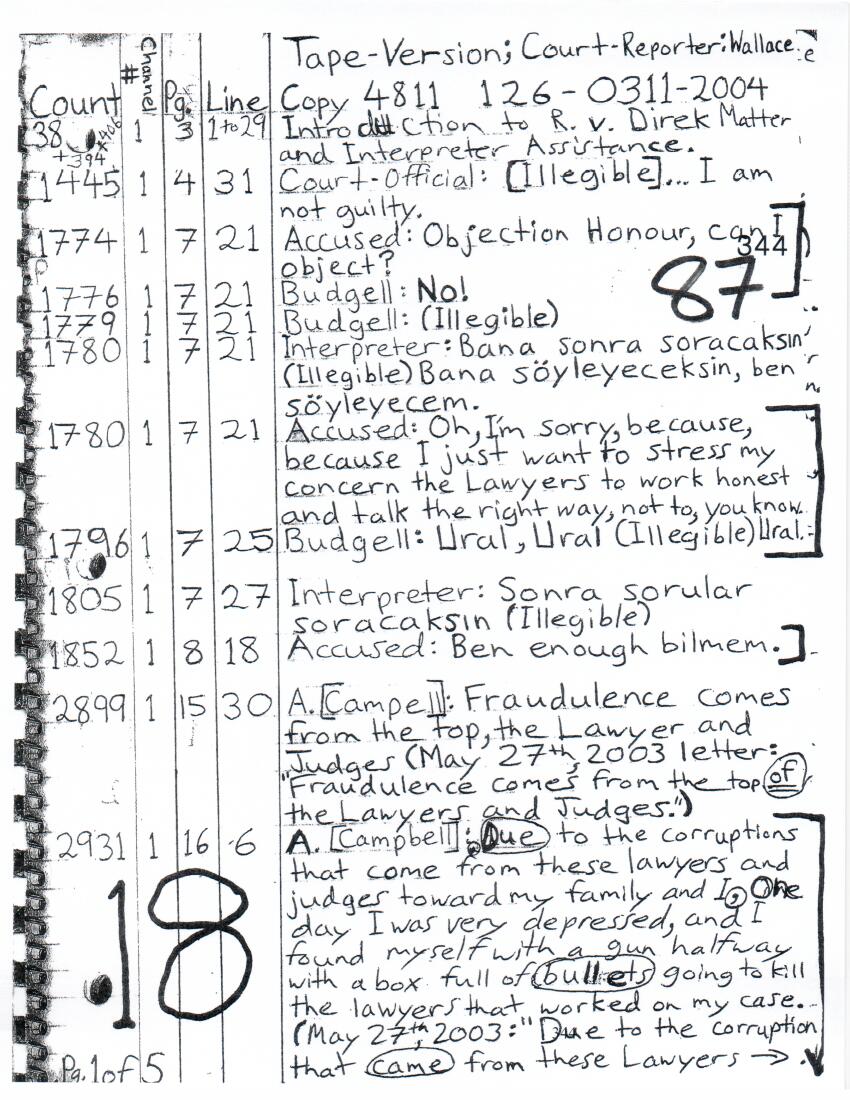 Tape-Version; Court-Reporter: Wallace. e
Count Channel # Pg. Line Copy 4811 126-0311-2004
38 1 3 1 to 29 Introduction to R. v. Direk Matter
+394 and Interpreter Assistance.
1445 1 4 31 Court-Official: [Illegible]... I am
not guilty.
1774 1 7 21 Accused: Objection Honour, can I
344
object?
87
1776 1 7 21 Budgell: No!
1779 1 7 21 Budgell: (Illegible)
1780 1 7 21 Interpreter: Bana sonra soracaksın
(Illegible) Bana söyleyeceksin, ben
söyleyecem.
1780 1 7 21 Accused: Oh, I'm sorry, because,
because I just want to stress my
concern the Lawyers to work honest
and talk the right way, not to, you know.
1796 1 7 25 Budgell: Ural, Ural (Illegible) Ural.
1805 1 7 27 Interpreter: Sonra sorular
soracaksın (Illegible)
1852 1 8 18 Accused: Ben enough bilmem.
2899 1 15 30 A. [Campell]: Fraudulence comes
from the top, the Lawyer and
Judges (May 27th, 2003 letter:
"Fraudulence comes from the top of
the Lawyers and Judges.")
2931 1 16 6 A. [Campbell]: Due to the corruptions
that come from these lawyers and
judges toward my family and I, One
day I was very depressed, and I
found myself with a gun halfway
with a box full of bullets going to kill
the lawyers that worked on my case...
(May 27th, 2003: "Due to the corruption
that came from these Lawyers →
.18
Pg. 1 of 5